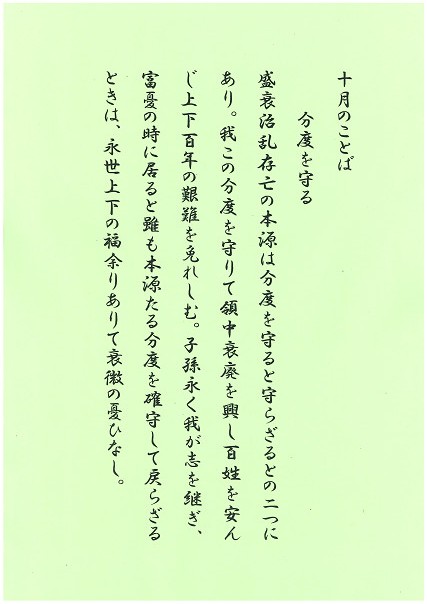 十月のことば
分度を守る
盛衰治乱存亡の本源は分度を守ると守らざるとの二つに
あり。我この分度を守りて領中衰廃を興し百姓を安ん
じ上下百年の艱難を免れしむ。子孫永く我が志を継ぎ、
富優の時に居ると雖も本源たる分度を確守して戻らざる
ときは、永世上下の福余りありて衰微の憂ひなし。